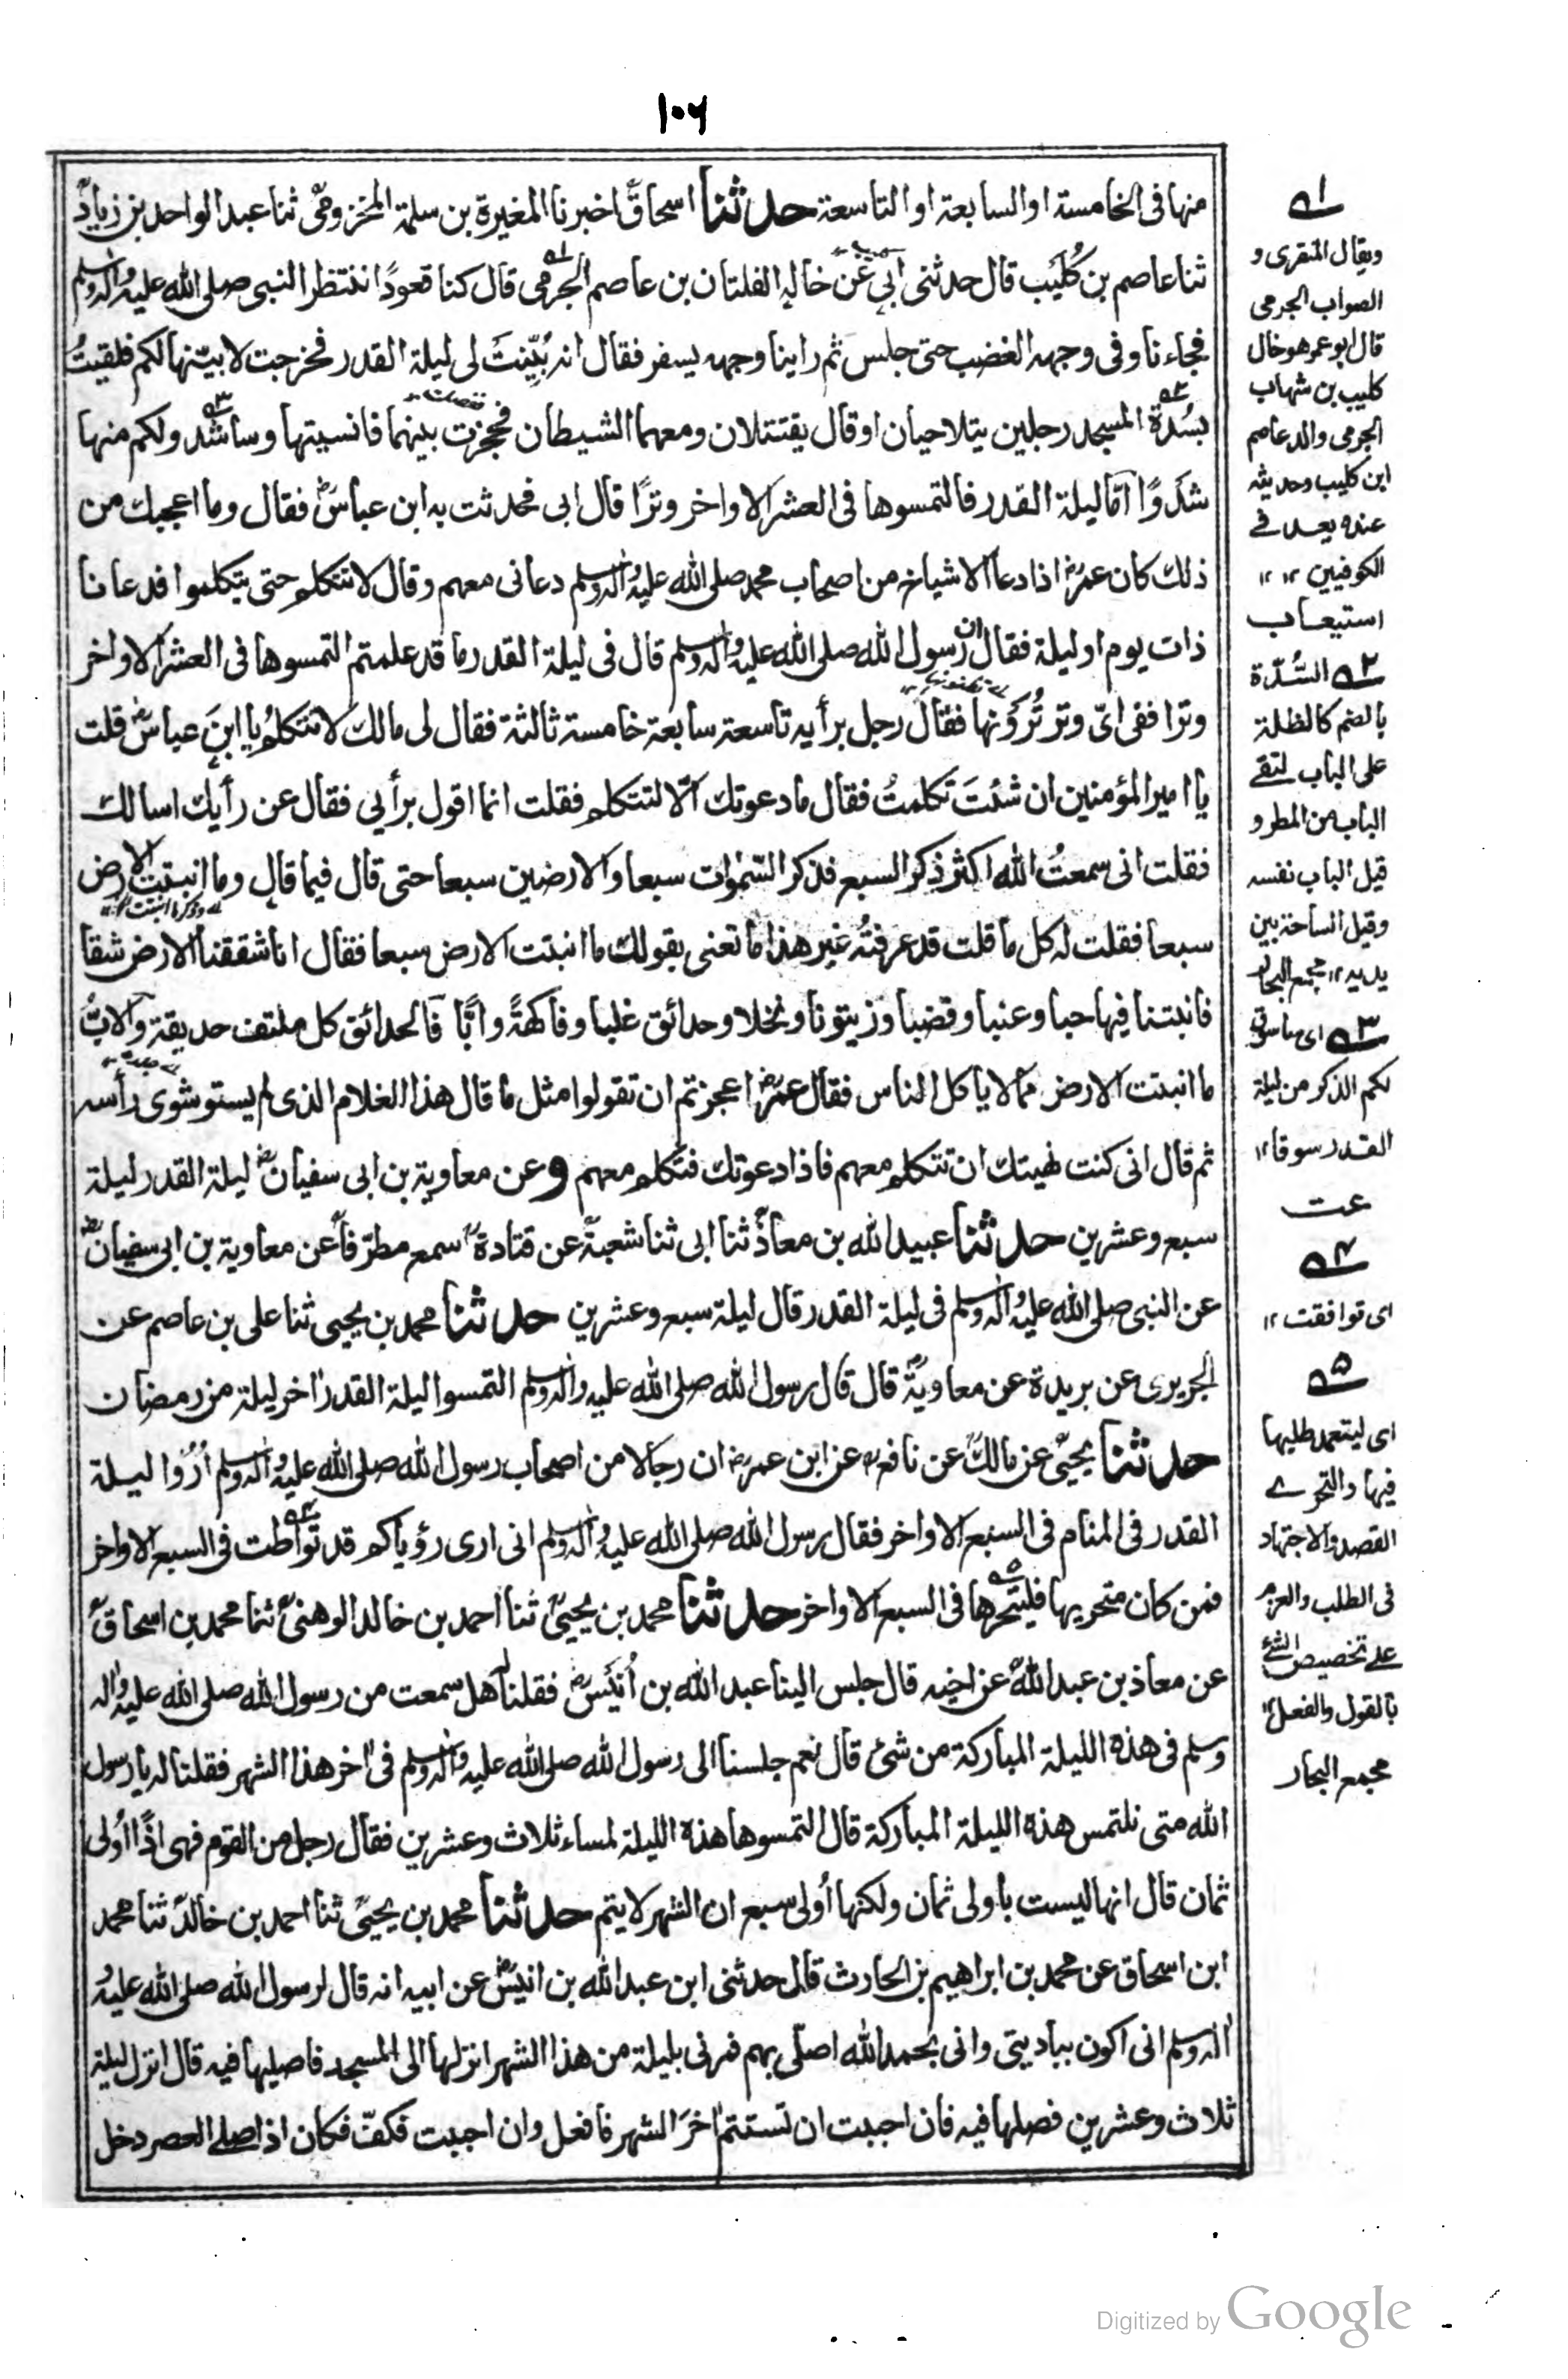 ۱۰۶
منها فى الخامسة او السابعة او التاسعة حدثنا اسحاق اخبرنا المغيرة بن سلمة المخزومى ثنا عبد الواحد بن زياد
ثنا عاصم بن كُلَيب قال حدثنى ابى عن خاله الفلتان بن عاصم الجرمى قال كنا قعودًا ننتظر النبى صلى الله عليه واله وسلم
فجاءنا وفى وجهه الغضب حتى جلس ثم راينا وجهه يسفر فقال انه بُيِّنتَ لى ليلة القدر فخرجت لابيّنها لكم فلقيتُ
بسُدة المسجد رجلين يتلاحيان او قال يقتتلان ومعهما الشيطان فحجزت بينهما فانسيتها وساشدو لكم منها
شدوًا اما ليلة القدر فالتمسوها فى العشر الاواخر وترًا قال ابى فحدثت به ابن عباس فقال وما اعجبك من
ذلك كان عمر اذا دعا الاشياخ من اصحاب محمد صلى الله عليه واله وسلم دعانى معهم وقال لا تتكلم حتى يتكلموا فدعانا
ذات يوم او ليلة فقال ان رسول الله صلى الله عليه واله وسلم قال فى ليلة القدر ما قد علمتم التمسوها فى العشر الاواخر
وترا ففى اىّ وتر تُرَونها فقال رجل برأيه تاسعة سابعة خامسة ثالثة فقال لى مالك لا تتكلم يا ابن عباس قلت
يا امير المؤمنين ان شئتَ تكلمتُ فقال ما دعوتك الا لتتكلم فقلت انما اقول برأيى فقال عن رأيك اسالك
فقلت انى سمعتُ الله اكثر ذكر السبع فذكر السمٰوات سبعا والارضين سبعا حتى قال فيما قال وما انبتت الارض
سبعا فقلت له كل ما قلت قد عرفتُه غير هذا ما تعنى بقولك ما انبتت الارض سبعا فقال انا شققنا الارض شقا
فانبتنا فيها حبا وعنبا وقضبا وزيتونا ونخلا وحدائق غلبا وفاكهةً وابًّا فالحدائق كل ملتف حديقة والابُّ
ما انبتت الارض مما لا ياكل الناس فقال عمر اعجزتم ان تقولوا مثل ما قال هذا الغلام الذى لم يستو شوى رأسه
ثم قال انى كنت نهيتك ان تتكلم معهم فاذا دعوتك فتكلم معهم وعن معاوية بن ابى سفيان ليلة القدر ليلة
سبع وعشرين حدثنا عبيد الله بن معاذ ثنا ابى ثنا شعبة عن قتادة سمع مطرفا عن معاوية بن ابى سفيان
عن النبى صلى الله عليه واله وسلم فى ليلة القدر قال ليلة سبع وعشرين حدثنا محمد بن يحيى ثنا على بن عاصم عن
الجريرى عن بريدة عن معاوية قال قال رسول الله صلى الله عليه واله وسلم التمسوا ليلة القدر اخر ليلة من رمضان
حدثنا يحيى عن مالك عن نافع عن ابن عمر ان رجالا من اصحاب رسول الله صلى الله عليه واله وسلم اُرُوا ليلة
القدر فى المنام فى السبع الاواخر فقال رسول الله صلى الله عليه واله وسلم انى ارى رؤياكم قد تواطت فى السبع الاواخر
فمن كان متحريها فليتحرها فى السبع الاواخر حدثنا محمد بن يحيى ثنا احمد بن خالد الوهبى ثنا محمد بن اسحاق
عن معاذ بن عبد الله عن اخيه قال جلس الينا عبد الله بن اُنَيس فقلنا هل سمعت من رسول الله صلى الله عليه واله
وسلم فى هذه الليلة المباركة من شئ قال نعم جلسنا الى رسول الله صلى الله عليه واله وسلم فى اخر هذا الشهر فقلنا له يا رسول
الله متى نلتمس هذه الليلة المباركة قال التمسوها هذه الليلة لمساء ثلاث وعشرين فقال رجل من القوم فهى اذًا اُولى
ثمان قال انها ليست باولى ثمان ولكنها اُولى سبع ان الشهر لا يتم حدثنا محمد بن يحيى ثنا احمد بن خالد ثنا محمد
ابن اسحاق عن محمد بن ابراهيم بن الحارث قال حدثنى ابن عبد الله بن انيس عن ابيه انه قال لرسول الله صلى الله عليه
واله وسلم انى اكون بباديتى وانى بحمد الله اصلّى بهم فمرنى بليلة من هذا الشهر انزلها الى المسجد فاصليها فيه قال انزل ليلة
ثلاث وعشرين فصلها فيه فان احببت ان تستتم اخرَ الشهر فافعل وان احببت فكفّ فكان اذا صلى العصر دخل
۱
ويقال المنقرى و
الصواب الجرمى
قال ابو عمر هو خال
كليب بن شهاب
الجرمى والد عاصم
ابن كليب وحديثه
عنده يعد فى
الكوفيين ۱۲ ۱۲
استيعاب
۲ السُّدّة
بالضم كالظلة
على الباب لتقى
الباب من المطر و
قيل الباب نفسه
وقيل الساحة بين
يديه ۱۲ مجمع البحار
۳ اى ساسوق
لكم الذكر من ليلة
القدر سوقا ۱۲
۴
اى توافقت ۱۲
۵
اى ليتعمد طلبها
فيها والتحرى
القصد والاجتهاد
فى الطلب والعزم
على تخصيص الشئ
بالقول والفعل ۱۲
مجمع البحار
Digitized by Google